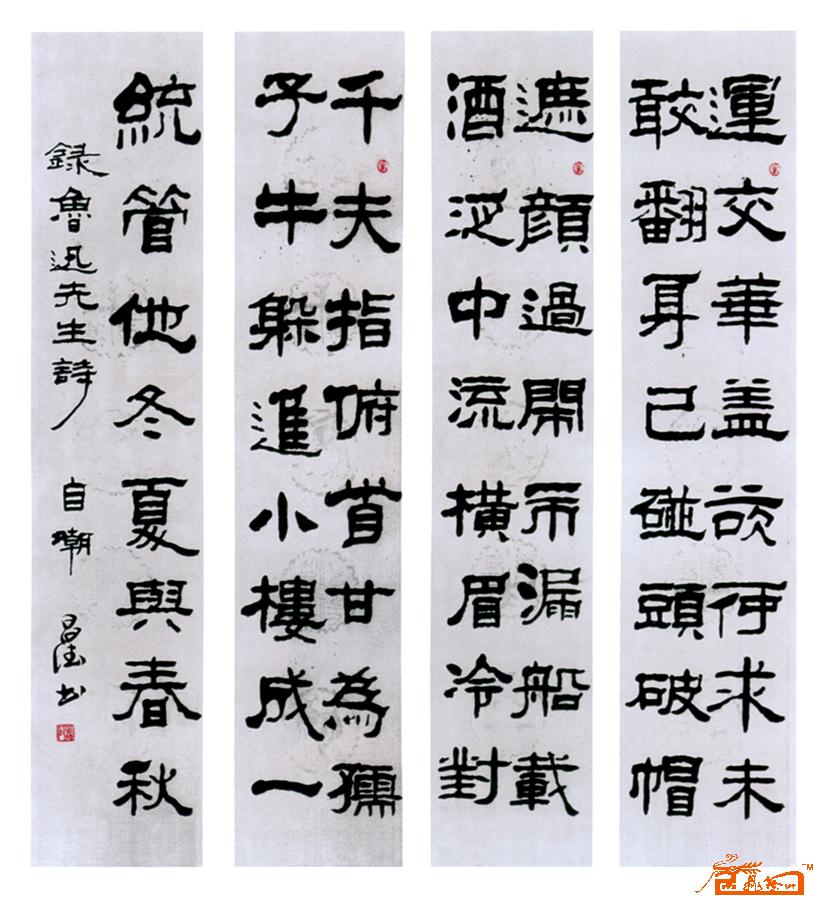 運交華盖欲何求未
敢翻身已碰頭破帽
遮顏過閙市漏船載
酒泛中流橫眉冷對
千夫指俯首甘為孺
子牛躲進小樓成一
統管他冬夏與春秋
録魯迅先生詩 自嘲